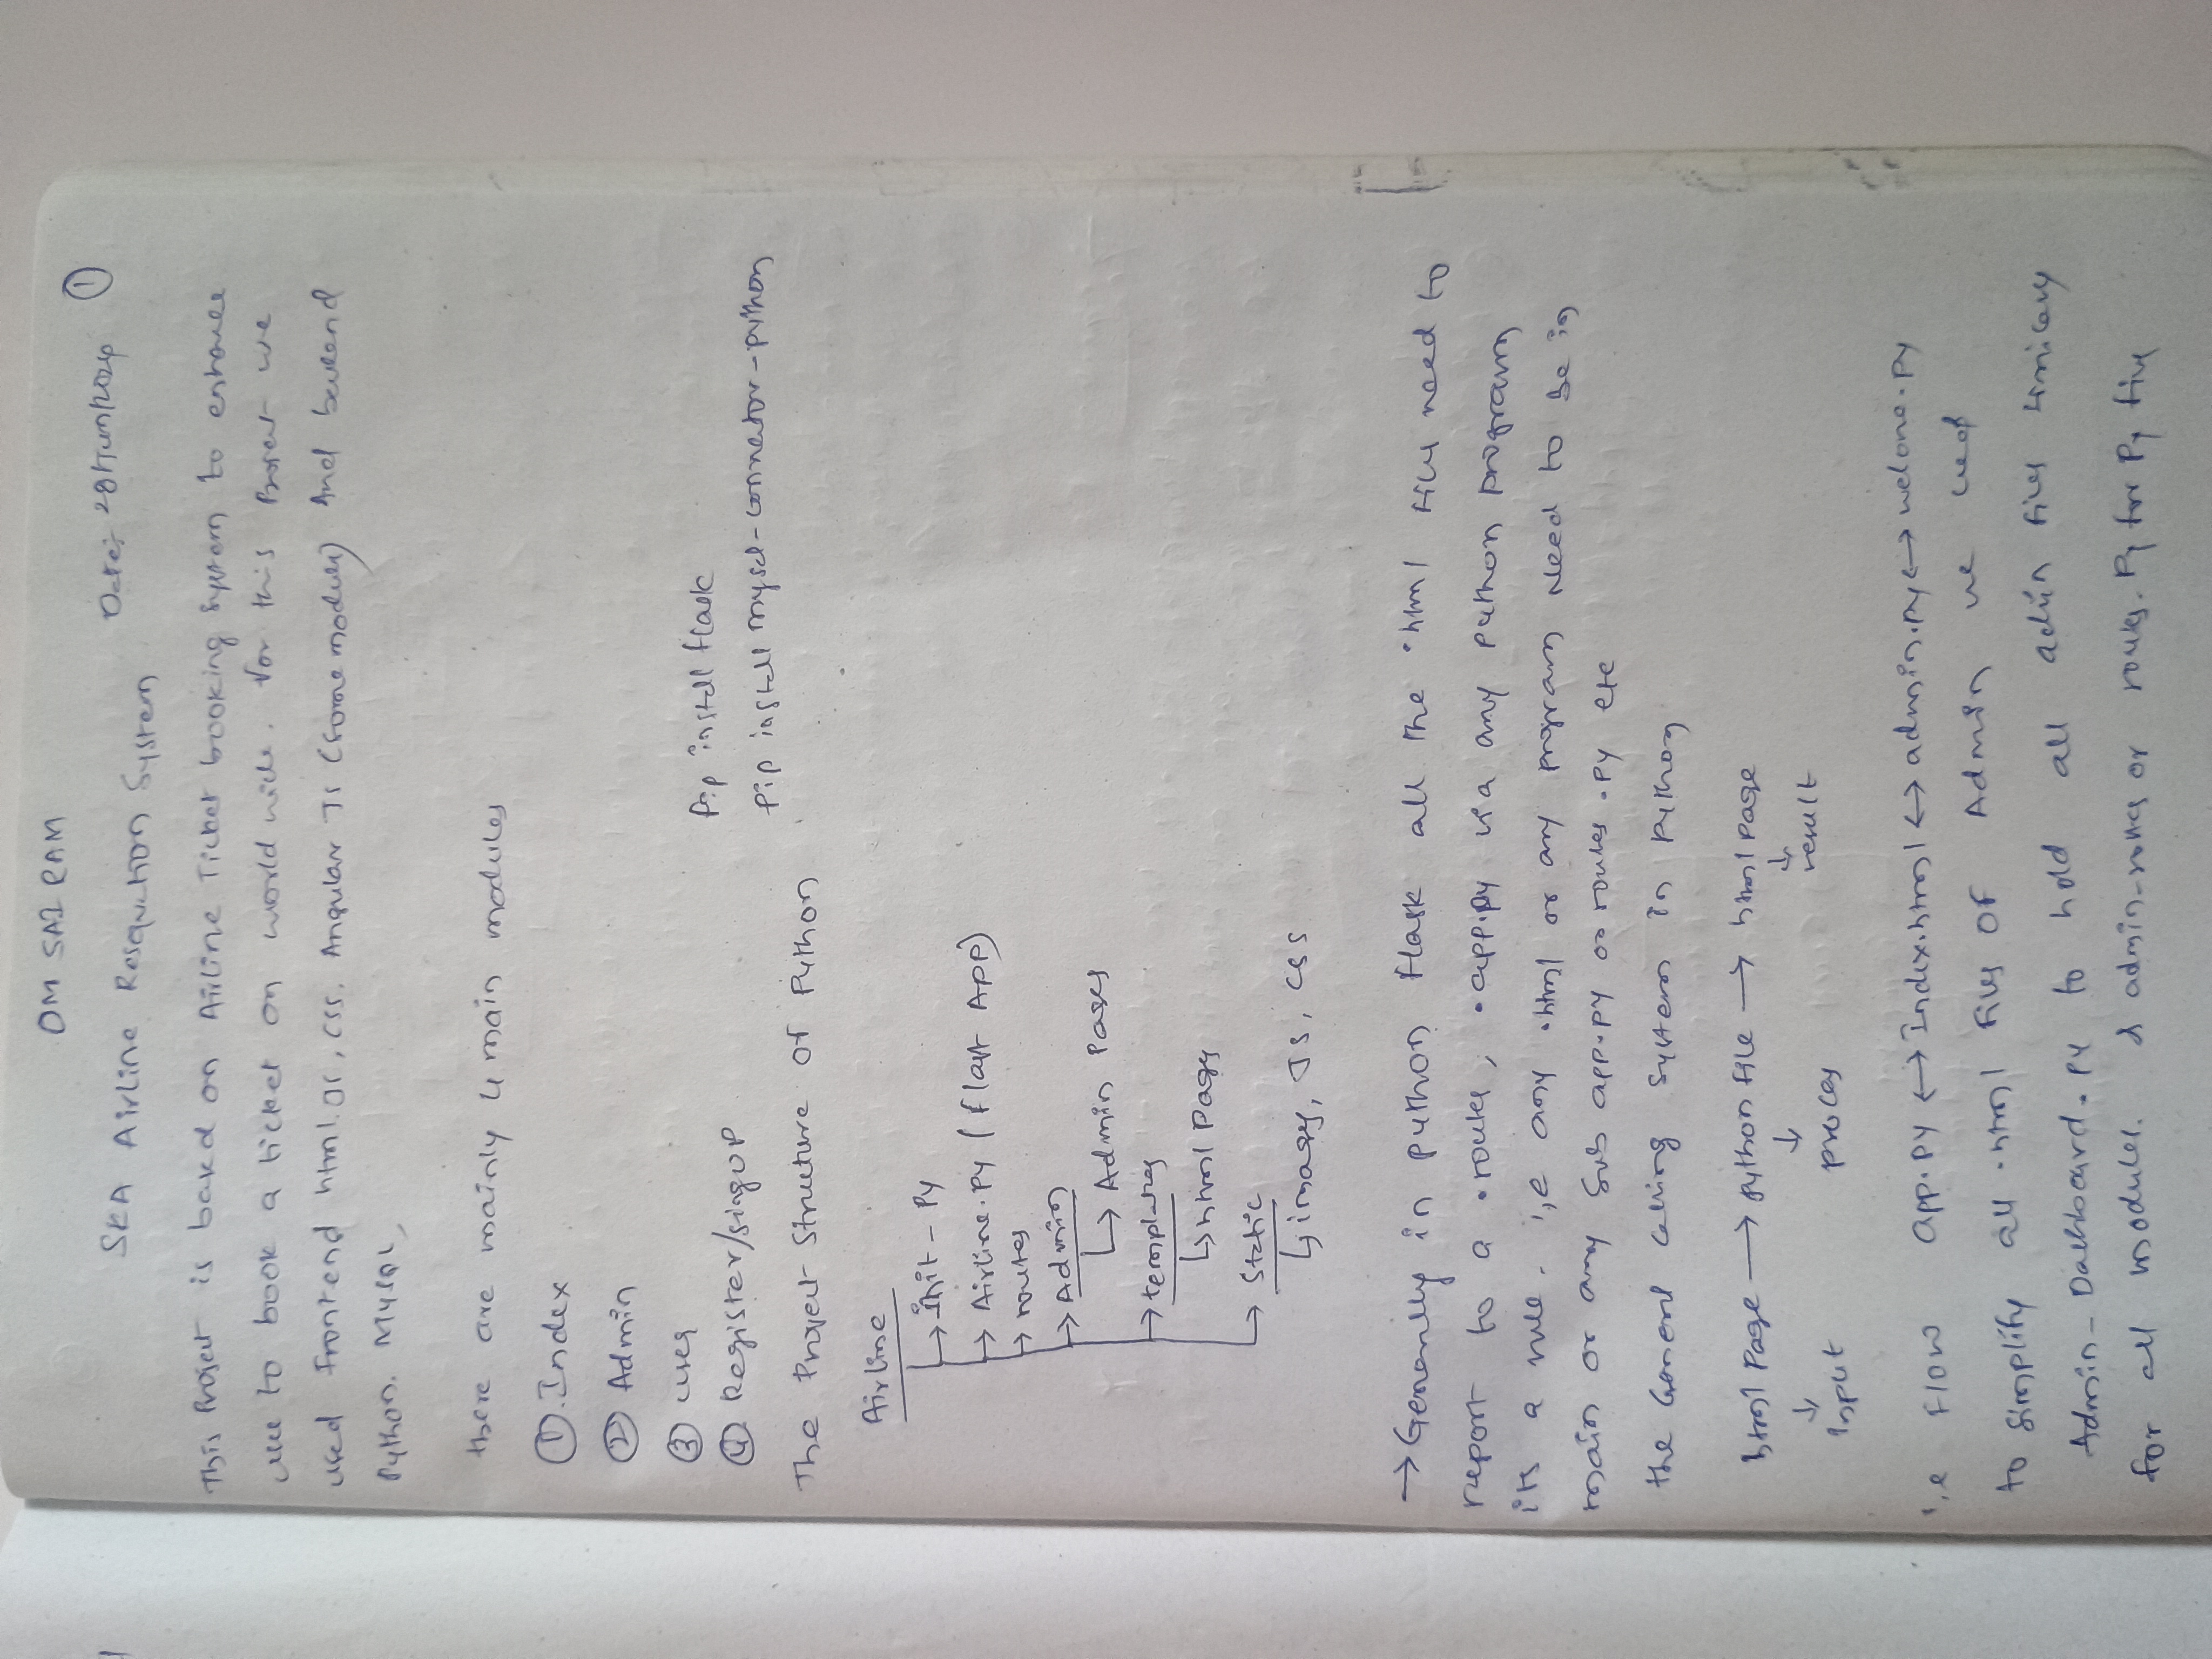 OM SAI RAM
①
Date:- 28/Jun/2024
SKA Airline Resqvction System
This Project is based on Airline Ticket booking system to enhance
use to book a ticket on world wide. For this Project we
used Frontend html. JS, CSS. Angular JS (some modules) And backend
Python. MySQL,
there are mainly 4 main modules
①. Index
② Admin
③ user
④. Register/singup
pip install flask
pip install mysql-connector-python
The Project Structure of Python
Airline
→ init - Py
→ Airline.py (Flask App)
→ routes
→ Admin
↳ Admin Pages
→ templates
↳ html Pages
→ Static
↳ images, JS, CSS
→ Generally in python flask all the .html files need to
report to a .routes, .app.py via any python program
its a rule. i,e any .html or any program Need to be in
main or any Sub app.py or routes.py etc
the General calling system in Python
html Page → python file → html page
↓ ↓ ↓
Input process result
i.e Flow app.py ↔ Index.html ↔ admin.py ↔ welone.py
to simplify all .html files of Admin we used
Admin-Dashboard.py to hold all admin files similary
for all modules. & admin-routes or routes.Py for Py files